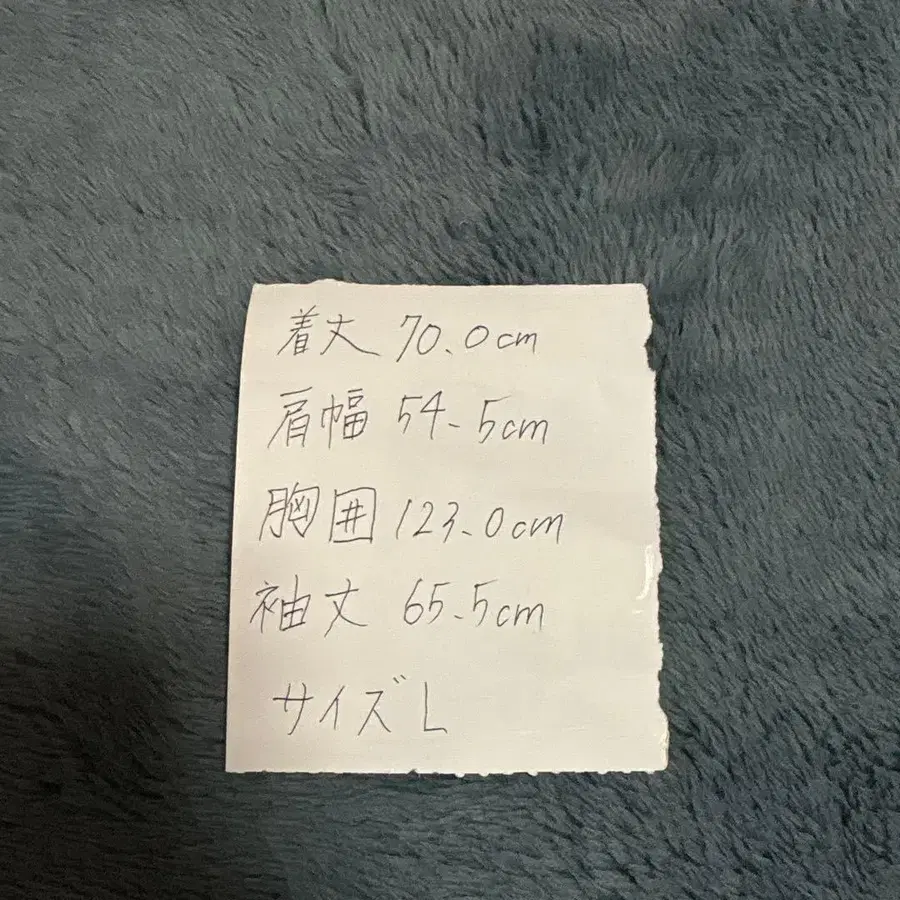 着丈 70.0cm
肩幅 54.5cm
胸囲 123.0cm
袖丈 65.5cm
サイズ L